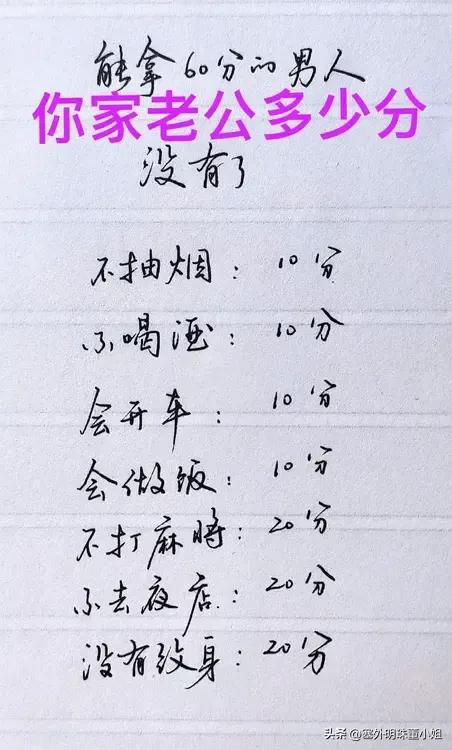 能拿60分的男人
你家老公多少分
没有了
不抽烟：10分
不喝酒：10分
会开车：10分
会做饭：10分
不打麻将：20分
不去夜店：20分
没有纹身：20分
头条 @塞外明珠董小姐